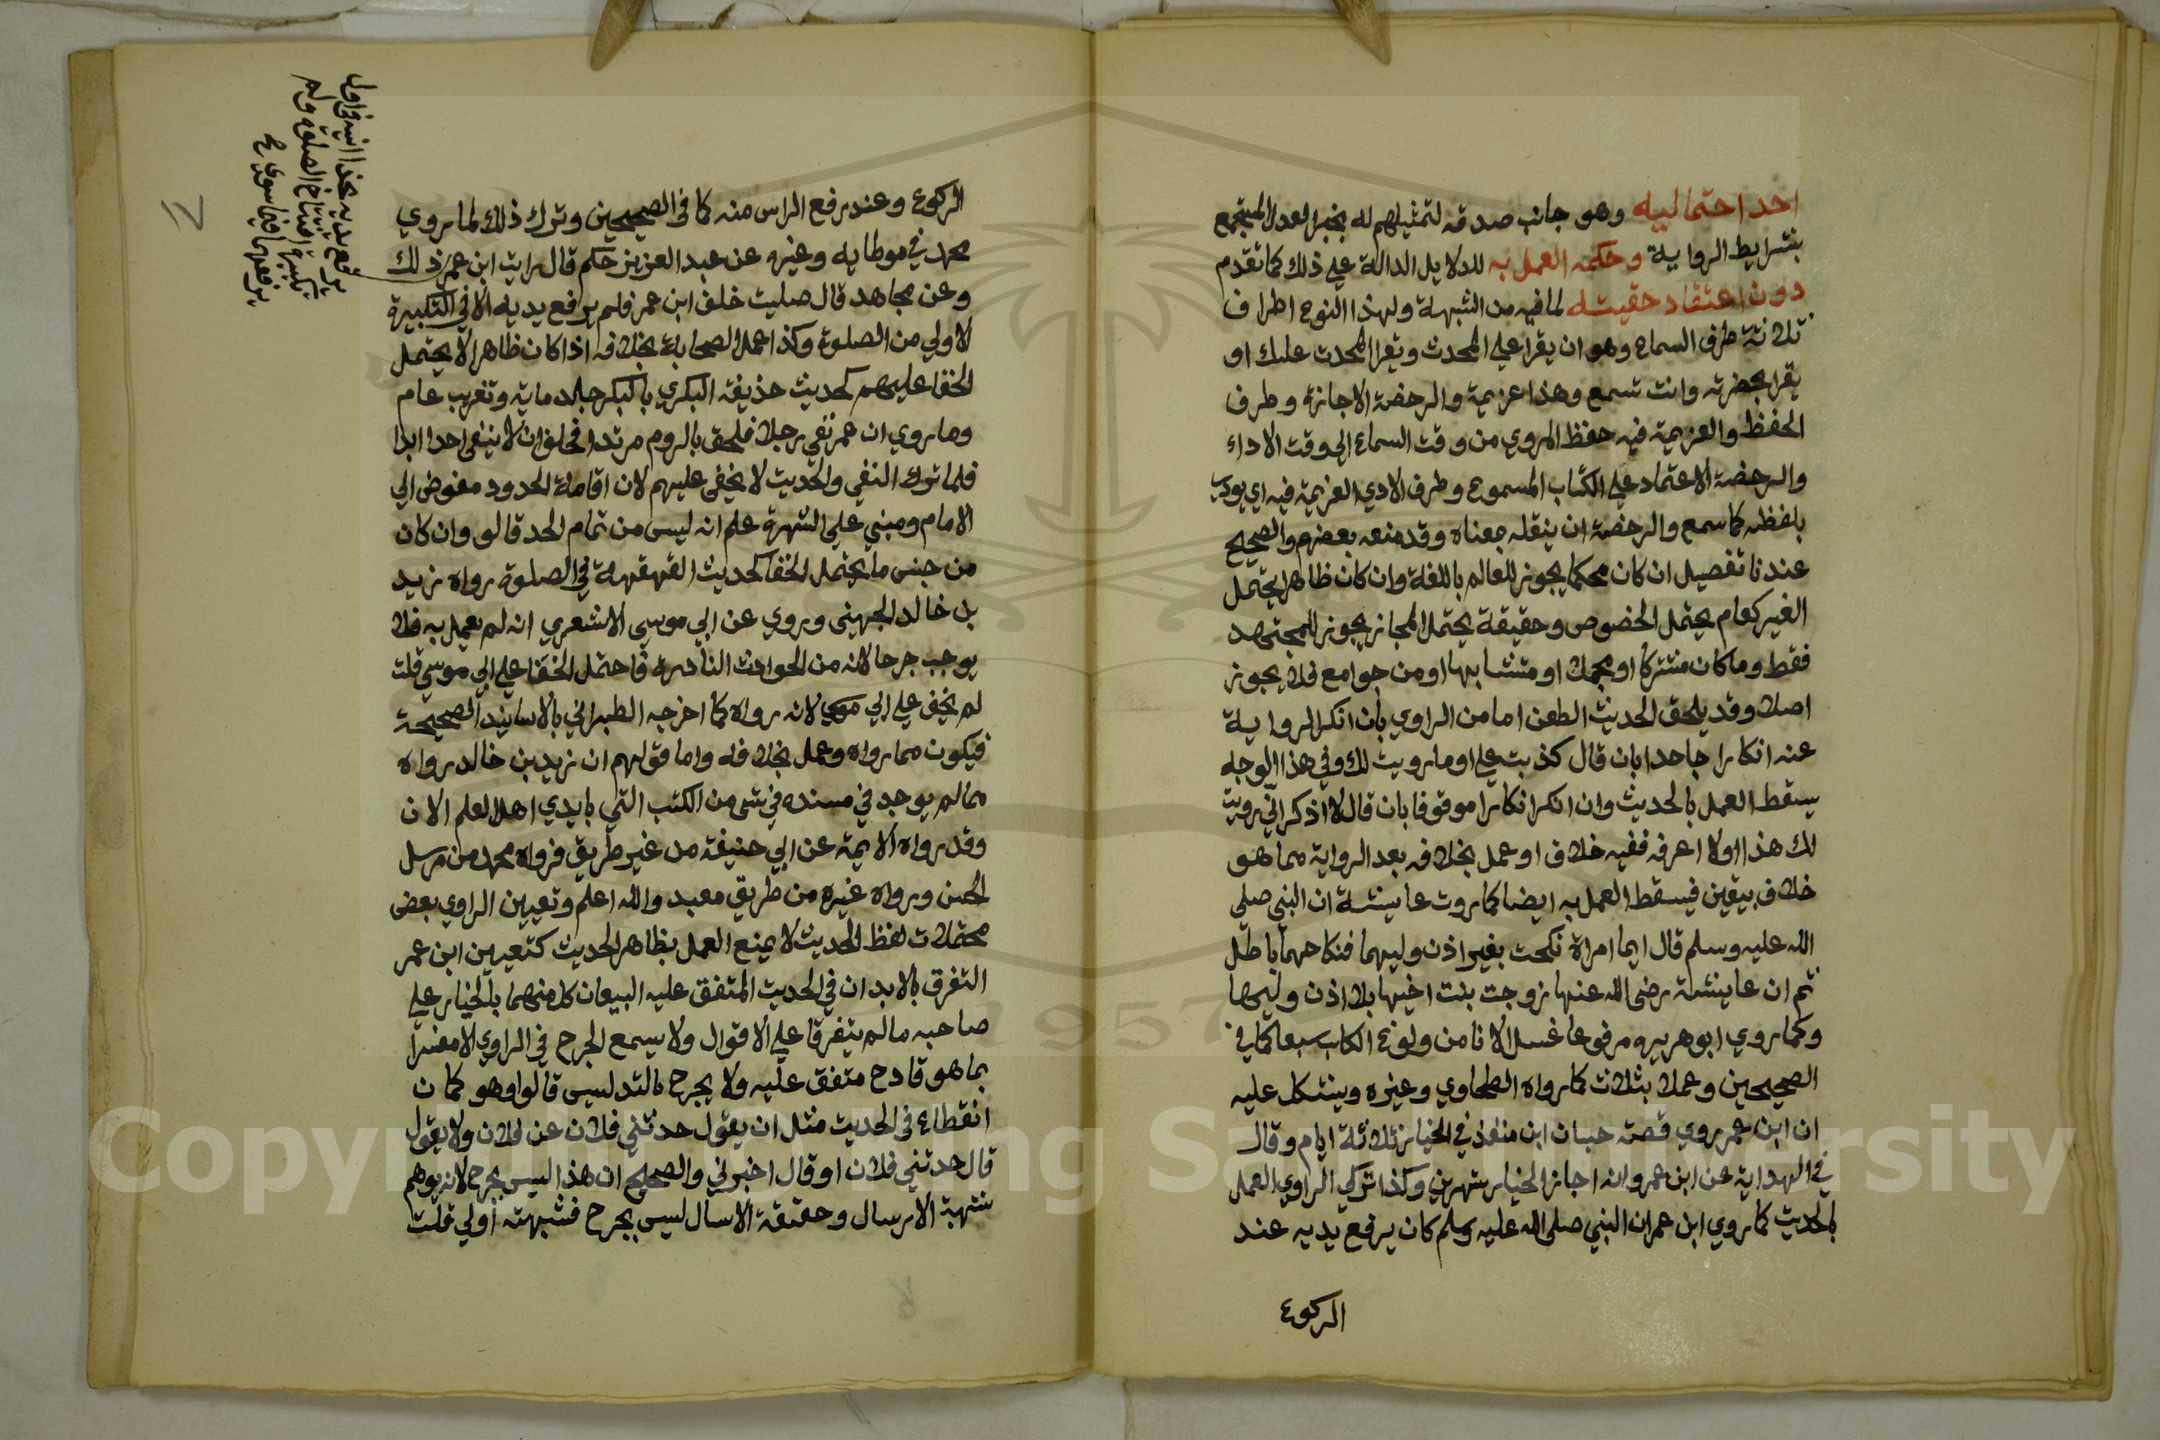 احد احتماليه وهو جانب صدقه لتمثيلهم له بخبر العدل المستجمع
بشرايط الرواية وحكمه العمل به للدلايل الدالة علي ذلك كما تقدم
دون اعتقاد حقيته لما فيه من الشبهة ولهذا النوع اطراف
ثلاثة طرف السماع وهو ان يقرا علي المحدث وتقرا المحدث عليك او
يقرا بحضرته وانت تسمع وهذا عزيمة والرخصة الاجازة وطرف
الحفظ والعزيمة فيه حفظ المروي من وقت السماع الي وقت الاداء
والرخصة الاعتماد علي الكتاب المسموع وطرف الادي العزيمة فيه اي يودي
بلفظه كما سمع والرخصة ان ينقله بمعناه وقد منعه بعضهم والصحيح
عندنا تفصيل ان كان محكما يجوز للعالم باللغة وان كان ظاهر يحتمل
الغير كعام يحتمل الخصوص وحقيقة يحتمل المجاز يجوز للمجتهد
فقط وما كان مشتركا او مجملا او متشابها او من جوامع فلا يجوز
اصلا وقد يلحق الحديث الطعن اما من الراوي بان انكر الرواية
عنه انكارا جاحدا بان قال كذبت علي او ما رويت لك وفي هذا الوجه
يسقط العمل بالحديث وان انكر انكارا موقوفا بان قال لا اذكر اني رويت
لك هذا اولا اعرفه ففيه خلاف او عمل بخلافه بعد الرواية مما هو
خلاف بيقين فيسقط العمل به ايضا كما روت عايشة ان النبي صلي
الله عليه وسلم قال ايما امراة نكحت بغير اذن وليها فنكاحها باطل
ثم ان عايشة رضي الله عنها زوجت بنت اخيها بلا اذن وليها
وكما روي ابو هريره مرفوعا غسل الانا من ولوغ الكلب سبعا كما في
الصحيحين وعملا بثلاث كما رواه الطحاوي وغيره ويشكل عليه
ان ابن عمر روي قصة حبان ابن منقذ في الخيار ثلاثة ايام وقال
في الهداية عن ابن عمر وانه اجاز الخيار شهرين وكذا ترك الراوي العمل
بالحديث كما روي ابن عمر ان النبي صلي الله عليه وسلم كان يرفع يديه عند
الركوع
الركوع وعند رفع الراس منه كما في الصحيحين وترك ذلك لما روي
محمد في موطايه وغيره عن عبد العزيز حكم قال رايت ابن عمر ذلك
وعن مجاهد قال صليت خلف ابن عمر فلم يرفع يديه الا في التكبيرة
الاولي من الصلوة وكذا عمل الصحابة بخلافه اذا كان ظاهرا لا يحتمل
الخفا عليهم كحديث حذيفة البكري بالبكر جلد ماية وتغريب عام
وما روي ان عمر نفي رجلا فلحق بالروم مرتدا فحلف ان لا ينفي احدا ابدا
فلما ترك النفي والحديث لا يخفي عليهم لان اقامة الحدود مفوض الي
الامام ومبني علي الشهرة علم انه ليس من تمام الحد قالو وان كان
من جنس ما يحتمل الخفا كحديث القهقهة في الصلوة رواه زيد
بن خالد الجهيني وروي عن ابي موسي الاشعري انه لم يعمل به فلا
يوجب جرحا لانه من الحوادث النادرة فاحتمل الخفا علي ابي موسي قلت
لم يخفي علي ابي موسي لانه رواه كما اخرجه الطبراني بالاسانيد الصحيحة
فيكون مما رواه وعمل بخلافه واما قولهم ان زيد بن خالد رواه
مما لم يوجد في مسنده في شي من الكتب التي بايدي اهل العلم الان
وقد رواه الايمة عن ابي حنيفة من غير طريق فرواه محمد من مرسل
الحسن ورواه غيره من طريق معبد والله اعلم وتعيين الراوي بعض
محتملات لفظ الحديث لا يمنع العمل بظاهر الحديث كتعيين ابن عمر
التفرق بالابدان في الحديث المتفق عليه البيعان كل منهما بالخيار علي
صاحبه ما لم يتفرقا علي الاقوال ولا يسمع الجرح في الراوي الا مفسرا
بما هو قادح متفق عليه ولا يجرح بالتدليس قالوا وهو كمان
انقطاع في الحديث مثل ان يقول حدثني فلان عن فلان ولا يقول
قال حدثني فلان او قال اخبرني والصحيح ان هذا ليس بجرح لانه يوهم
شبهة الارسال وحقيقة الارسال ليس بجرح فشبهته اولي قلت
يرفع يديه بحذا اذنيه في اول
تكبيرة افتتاح الصلوة ولم
يرفعهما فيما سوي
١٢
Copyright © King Saud University
1957